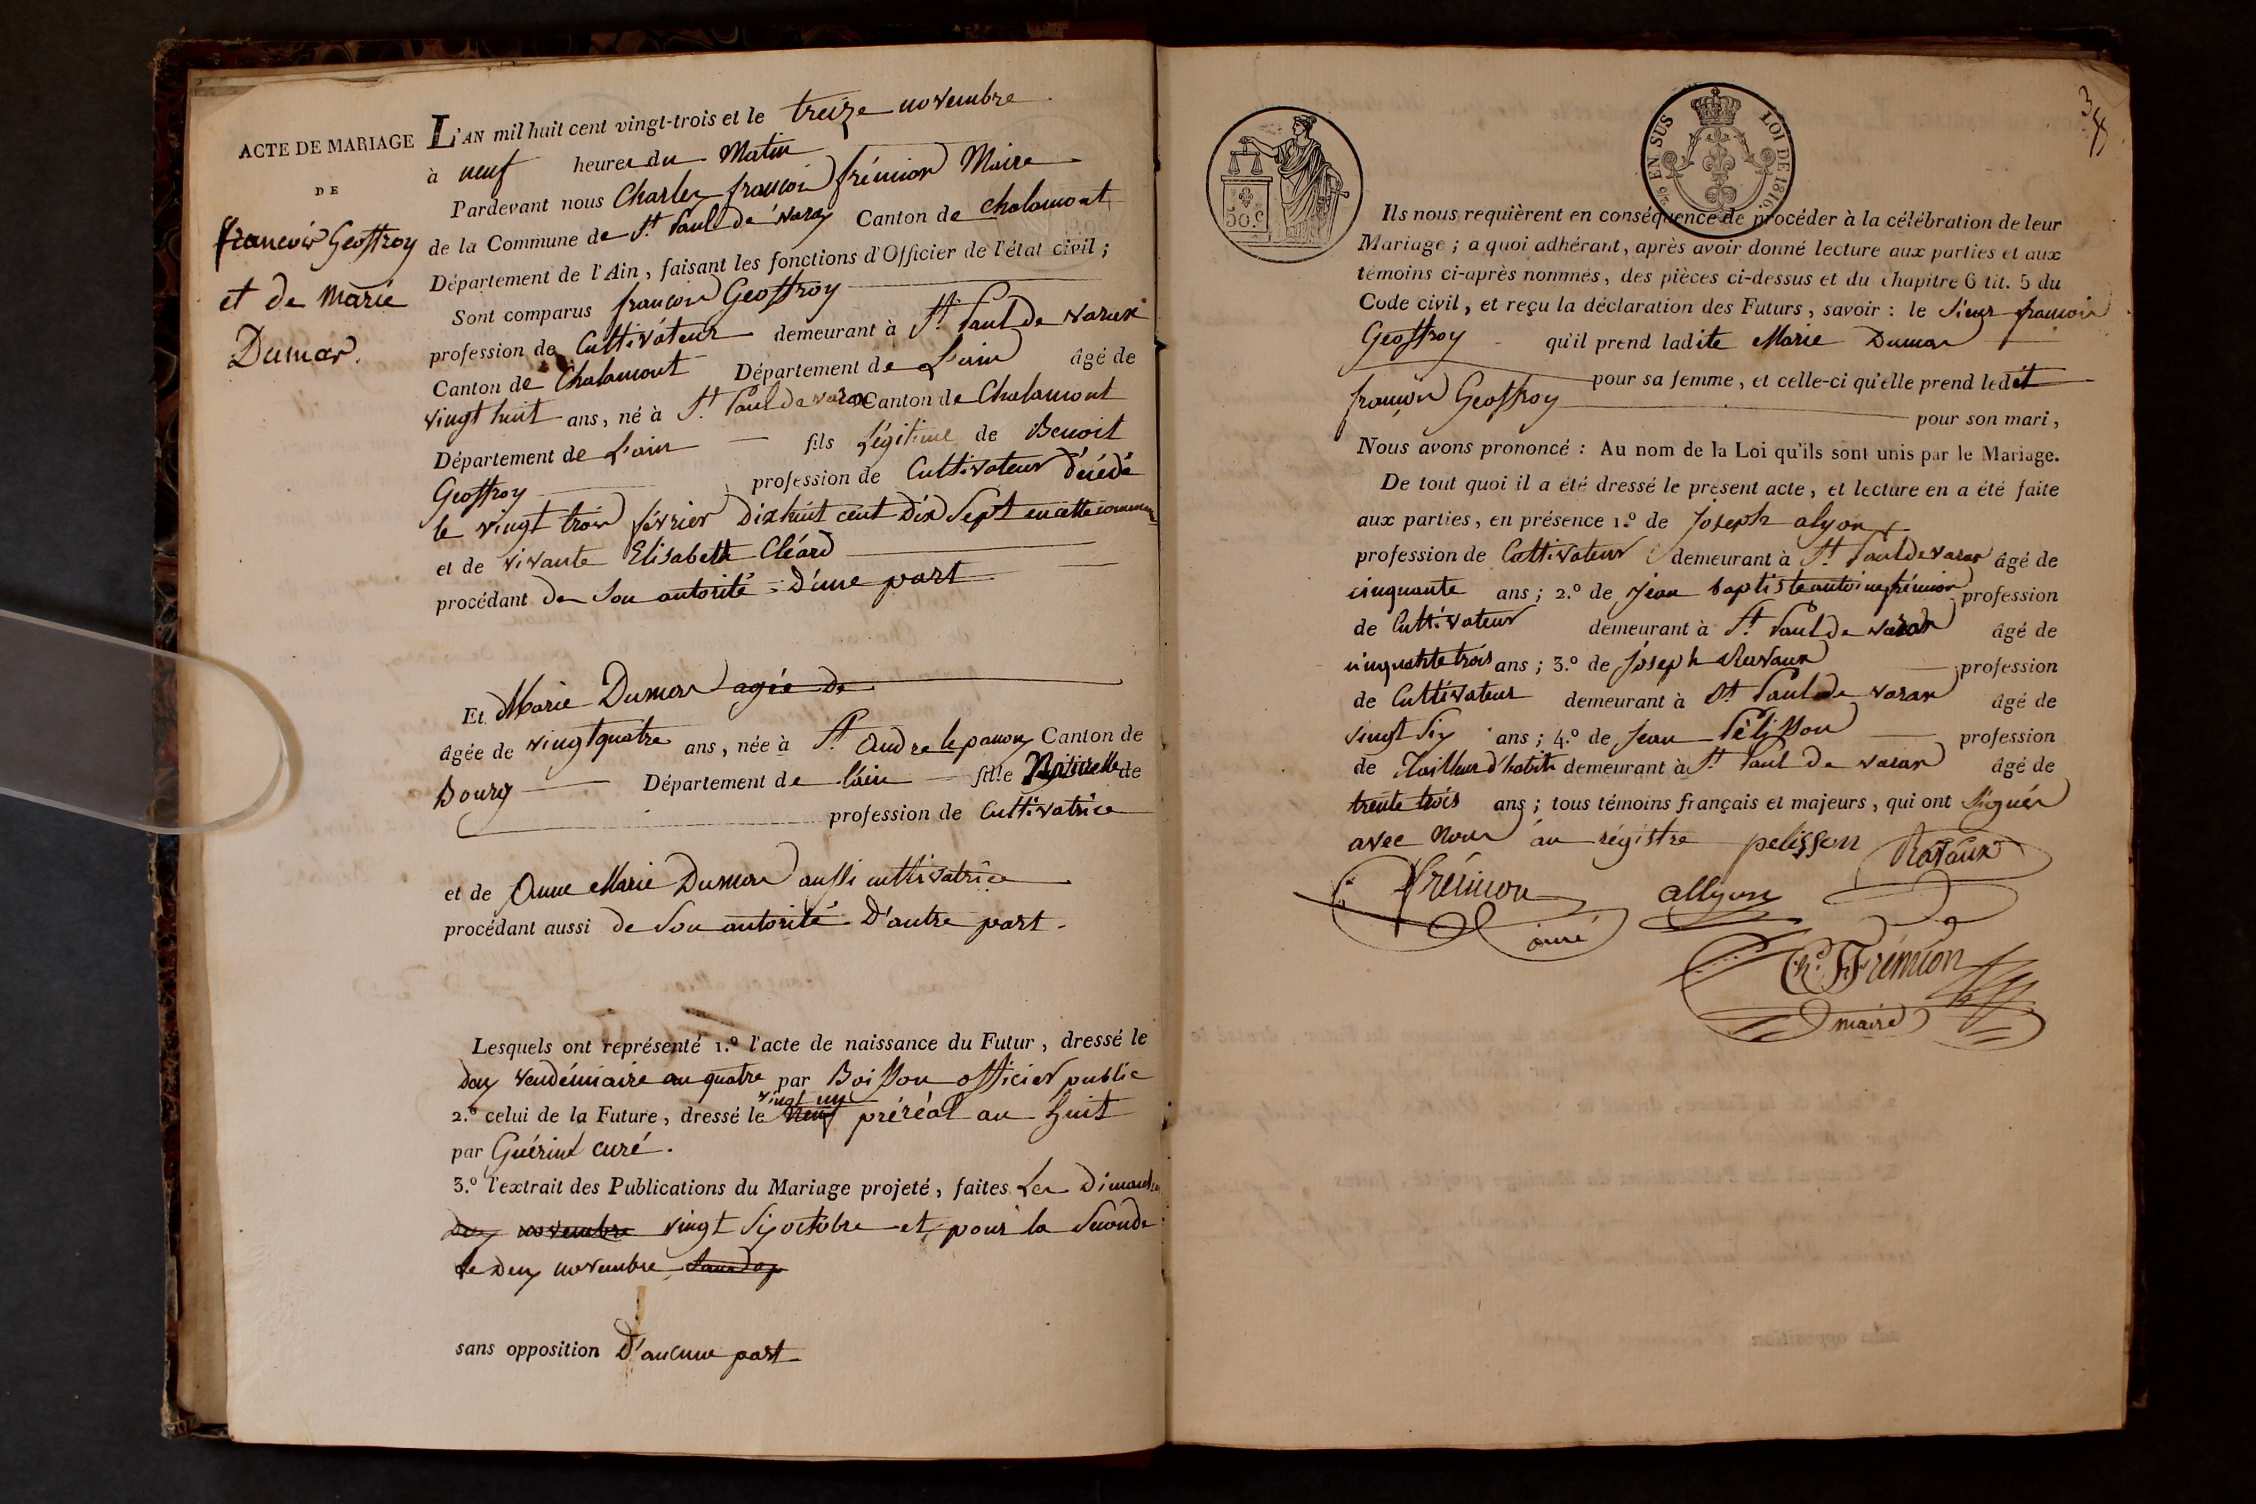 ACTE DE MARIAGE
DE
françois Geoffroy
et de marie
Dumas.
L'AN mil huit cent vingt-trois et le treize novembre
à neuf heures du Matin
Pardevant nous Charles françois frémion Maire
de la Commune de St. Paul de varax Canton de chalamont
Département de l'Ain, faisant les fonctions d'Officier de l'état civil ;
Sont comparus françois Geoffroy
profession de Cultivateur demeurant à St. Paul De varax
Canton de Chalamont Département de L'ain âgé de
vingt huit ans, né à St. Paul de varax Canton de Chalamont
Département de L'ain fils Légitime de Benoit
Geoffroy profession de Cultivateur Décédé
le vingt trois février Dixhuit cent Dix Sept en cette commune
et de vivante Elisabeth Cléard
procédant de Son autorité D'une part
Et Marie Dumas agée de
âgée de vingt quatre ans, née à St. Andre le panoux Canton de
Bourg Département de l'ain fille Naturelle de
profession de Cultivatrice
et de Anne Marie Dumas aussi cultivatrice
procédant aussi de Son autorité D'autre part.
Lesquels ont représenté 1.º l'acte de naissance du Futur, dressé le
Dix vendémiaire an quatre par Boisson officier public
vingt un
2.º celui de la Future, dressé le neuf préréal an huit
par Guérint curé.
3.º l'extrait des Publications du Mariage projeté, faites Les Dimanches
Dix novembre vingt Six octobre et pour la Seconde
Le Deux novembre
sans opposition D'aucune part
3
EN SUS LOI DE 1816.
50 c
Ils nous requièrent en conséquence de procéder à la célébration de leur
Mariage ; a quoi adhérant, après avoir donné lecture aux parties et aux
témoins ci-après nommés, des pièces ci-dessus et du chapitre 6 tit. 5 du
Code civil, et reçu la déclaration des Futurs, savoir : le Sieur françois
Geoffroy qu'il prend ladite Marie Dumas
pour sa femme, et celle-ci qu'elle prend ledit
françois Geoffroy
pour son mari,
Nous avons prononcé : Au nom de la Loi qu'ils sont unis par le Mariage.
De tout quoi il a été dressé le présent acte, et lecture en a été faite
aux parties, en présence 1.º de Joseph alyon
profession de Cultivateur demeurant à St. Paul de varax âgé de
cinquante ans ; 2.º de Jean baptiste antoine frémion profession
de Cultivateur demeurant à St. Paul de varax âgé de
cinquante trois ans ; 3.º de Joseph Ravaux profession
de Cultivateur demeurant à St Paul de varax âgé de
vingt Six ans ; 4.º de Jean Pélisson profession
de Tailleur d'habits demeurant à St. Paul De varax âgé de
trente trois ans ; tous témoins français et majeurs, qui ont Signés
avec Nous au régistre pelisson Ravaux
frémion allyon
Ch. F Frémion
maire